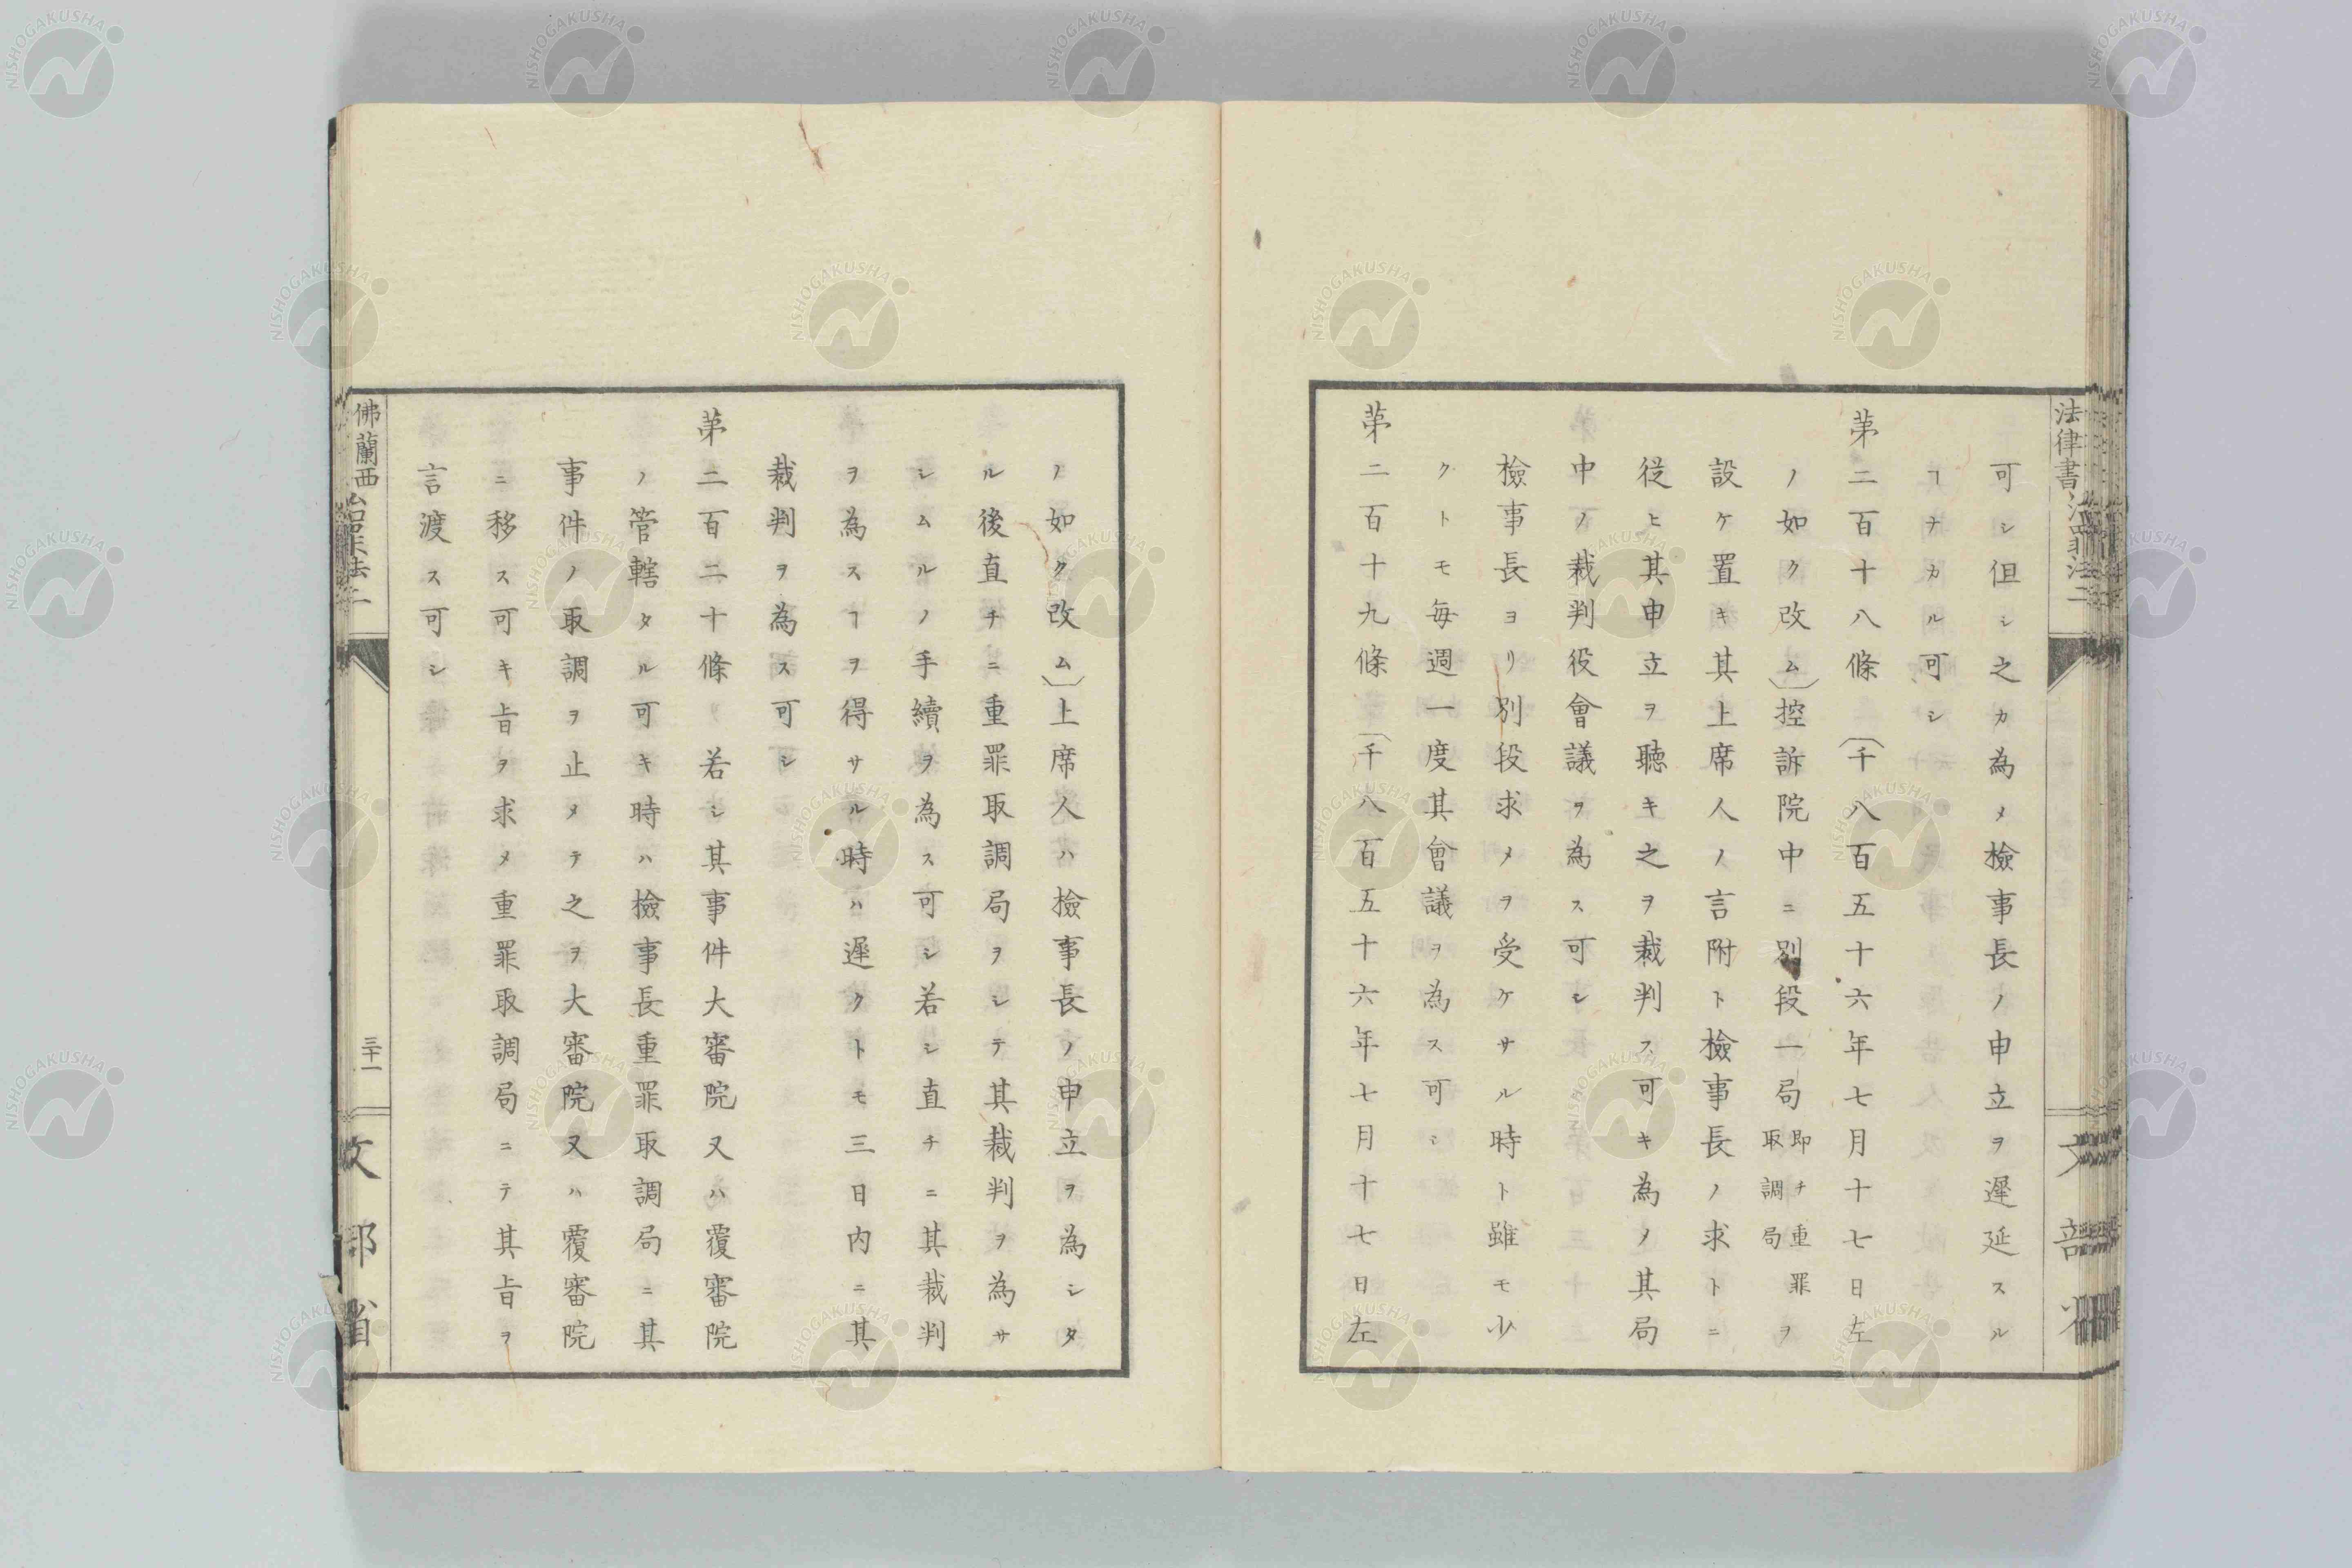 可シ但シ之カ為メ檢事長ノ申立ヲ遲延スル
ヿナカル可シ
苐二百十八條〔千八百五十六年七月十七日左
ノ如ク改ム〕控訴院中ニ別段一局即チ重罪取調局ヲ
設ケ置キ其上席人ノ言附ト檢事長ノ求トニ
従ヒ其申立ヲ聴キ之ヲ裁判ス可キ為メ其局
中ノ裁判役會議ヲ為ス可シ
檢事長ヨリ別段求メヲ受ケサル時ト雖モ少
クトモ毎週一度其會議ヲ為ス可シ
苐二百十九條〔千八百五十六年七月十七日左
ノ如ク改ム〕上席人ハ檢事長ノ申立ヲ為シタ
ル後直チニ重罪取調局ヲシテ其裁判ヲ為サ
シムルノ手續ヲ為ス可シ若シ直チニ其裁判
ヲ為スヿヲ得サル時ハ遲クトモ三日内ニ其
裁判ヲ為ス可シ
苐二百二十條 若シ其事件大審院又ハ覆審院
ノ管轄タル可キ時ハ檢事長重罪取調局ニ其
事件ノ取調ヲ止メテ之ヲ大審院又ハ覆審院
ニ移ス可キ旨ヲ求メ重罪取調局ニテ其旨ヲ
言渡ス可シ
法律書
文部省
佛蘭西治罪法二
三十一
文部省
NISHOGAKUSHA